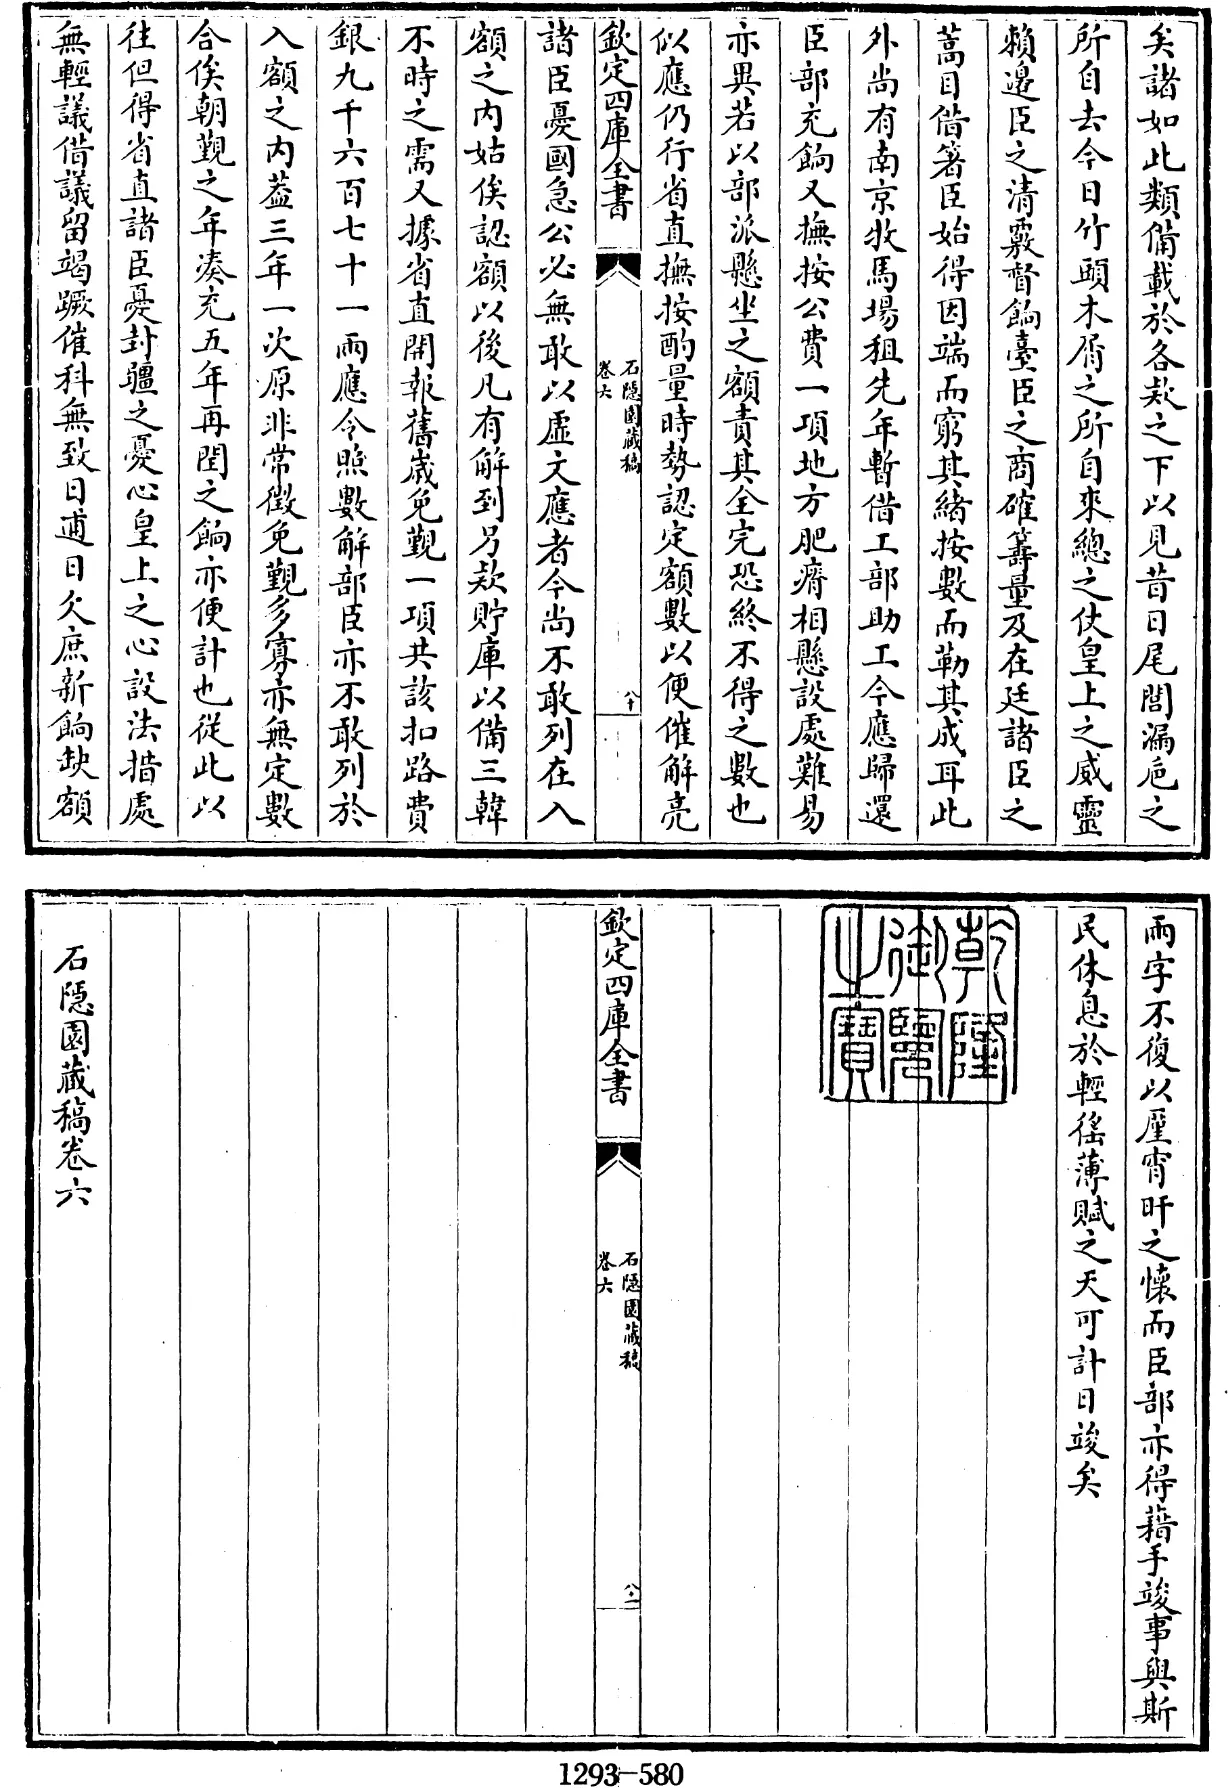 矣諸如此類備載於各款之下以見昔日尾閭漏卮之
所自去今日竹頭木屑之所自來總之仗皇上之威靈
賴邉臣之清覈督餉臺臣之商確籌量及在廷諸臣之
蒿目借箸臣始得因端而窮其緒按數而勒其成耳此
外尚有南京牧馬場租先年暫借工部助工今應歸還
臣部充餉又撫按公費一項地方肥瘠相懸設處難易
亦異若以部派懸坐之額責其全完恐終不得之數也
似應仍行省直撫按酌量時勢認定額數以便催解亮
欽定四庫全書
石隱園藏稿
卷六
八十
諸臣憂國急公必無敢以虛文應者今尚不敢列在入
額之内姑俟認額以後凡有解到另款貯庫以備三韓
不時之需又據省直開報舊歲免覲一項共該扣路費
銀九千六百七十一兩應令照數解部臣亦不敢列於
入額之内葢三年一次原非常徵免覲多寡亦無定數
合俟朝覲之年凑充五年再閏之餉亦便計也從此以
往但得省直諸臣憂封疆之憂心皇上之心設法措處
無輕議借議留竭蹶催科無致日逋日欠庶新餉缺額
兩字不復以廑宵旰之懷而臣部亦得藉手竣事與斯
民休息於輕徭薄賦之天可計日竣矣
乾隆
御覽
之寶
欽定四庫全書
石隱園藏稿
卷六
八十一
石隱園藏稿卷六
1293-580